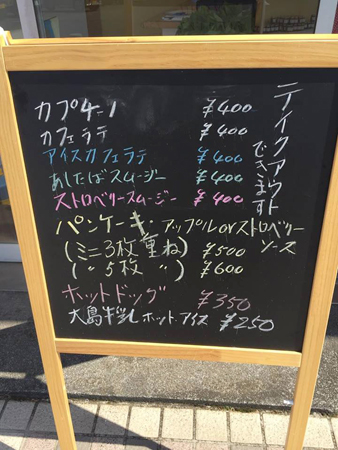 テイクアウト
できます
カプチーノ ¥400
カフェラテ ¥400
アイスカフェラテ ¥400
あしたばスムージー ¥400
ストロベリースムージー ¥400
パンケーキ・アップルorストロベリー
ソース
(ミニ3枚重ね) ¥500
(〃5枚 〃) ¥600
ホットドッグ ¥350
大島牛乳 ホット・アイス ¥250